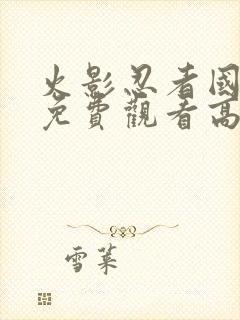 火影忍者國
免費觀看高
雪萊